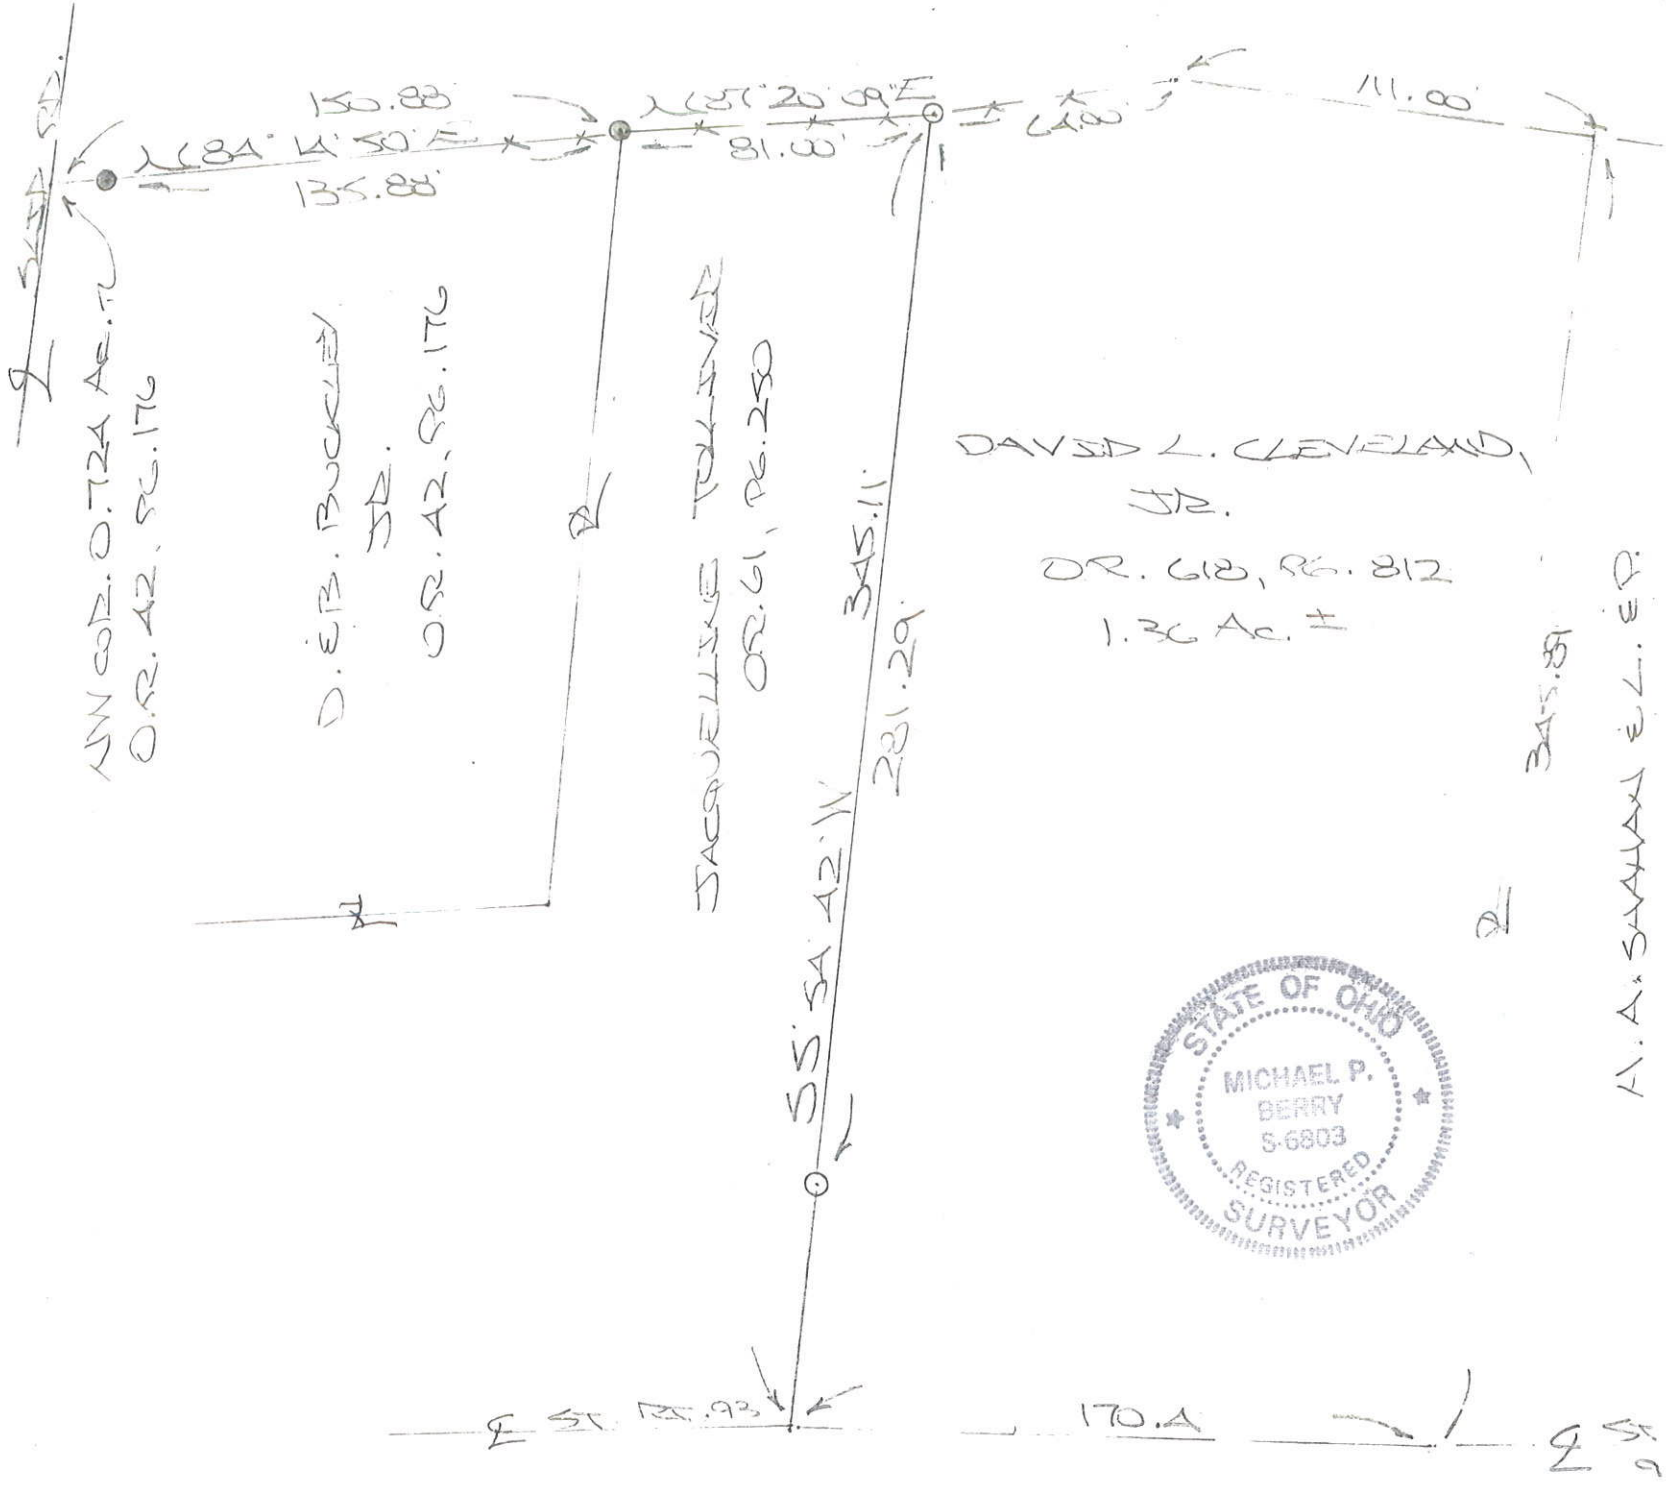 150.88'
N 84° 14' 50" E
135.88'
N 87° 20' 09" E
81.00'
64.00'
111.00'
NW COR. 0.724 Ac. TR.
O.R. 42, PG. 176
D. & B. BUCKLEY
JR.
O.R. 42, PG. 176
JACQUELINE
OR. 61, PG. 250
345.11'
281.29'
S 5° 54' 42" W
DAVID L. CLEVELAND,
JR.
OR. 618, PG. 812
1.36 Ac. ±
345.89'
A. A. & L.
STATE OF OHIO
MICHAEL P.
BERRY
S-6803
REGISTERED
SURVEYOR
℄ ST. RT. 93
170.4
℄ ST.